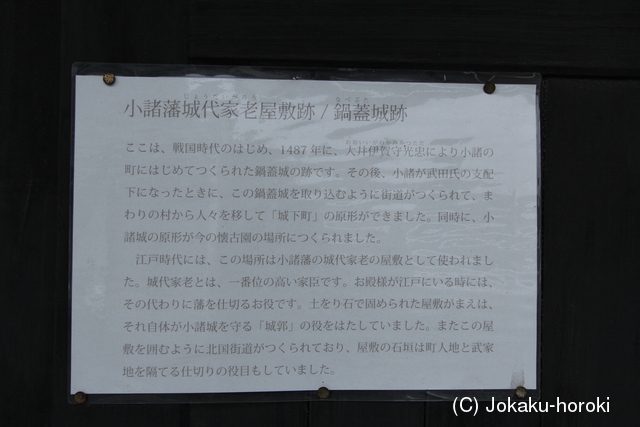 小諸藩城代家老屋敷跡 / 鍋蓋城跡
ここは、戦国時代のはじめ、1487年に、大井伊賀守光忠により小諸の
町にはじめてつくられた鍋蓋城の跡です。その後、小諸が武田氏の支配
下になったときに、この鍋蓋城を取り込むように街道がつくられて、ま
わりの村から人々を移して「城下町」の原形ができました。同時に、小
諸城の原形が今の懐古園の場所につくられました。
江戸時代には、この場所は小諸藩の城代家老の屋敷として使われまし
た。城代家老とは、一番位の高い家臣です。お殿様が江戸にいる時には、
その代わりに藩を仕切るお役です。土をり石で固められた屋敷がまえは、
それ自体が小諸城を守る「城郭」の役をはたしていました。またこの屋
敷を囲むように北国街道がつくられており、屋敷の石垣は町人地と武家
地を隔てる仕切りの役目もしていました。
(C) Jokaku-horoki